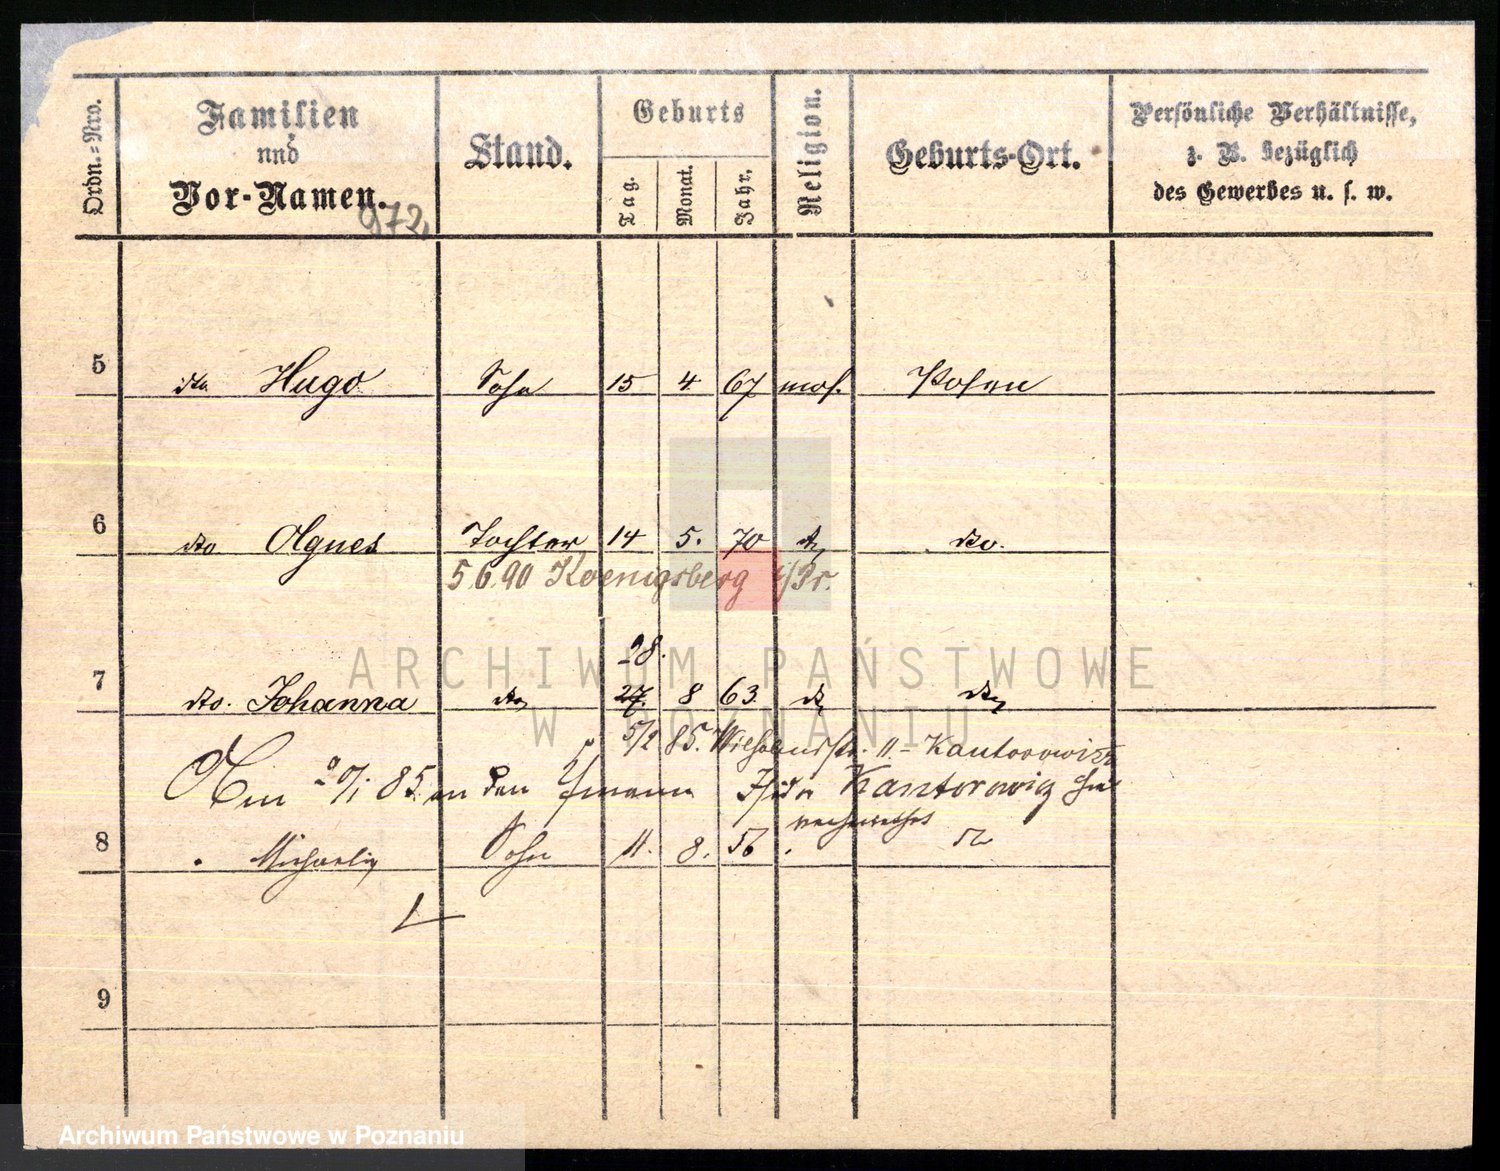 Ordn.=Nro.
Familien
und
Vor-Namen.
972
Stand.
Geburts
Tag.
Monat.
Jahr.
Religion.
Geburts-Ort.
Persönliche Verhältnisse,
z. B. bezüglich
des Gewerbes u. s. w.
5 dto Hugo Sohn 15 4 67 mos. Posen
6 dto Agnes Tochter 14 5. 70 dto.
5 6 90 Koenigsberg i/Pr.
28.
7 dto. Johanna dto 27. 8 63 dto dto
5/2 85. 11 = Kantorowicz
85 an den Isidor Kantorowicz
verheirathet
8 Sohn 11. 8. 56
9
ARCHIWUM PAŃSTWOWE
W POZNANIU
Archiwum Państwowe w Poznaniu